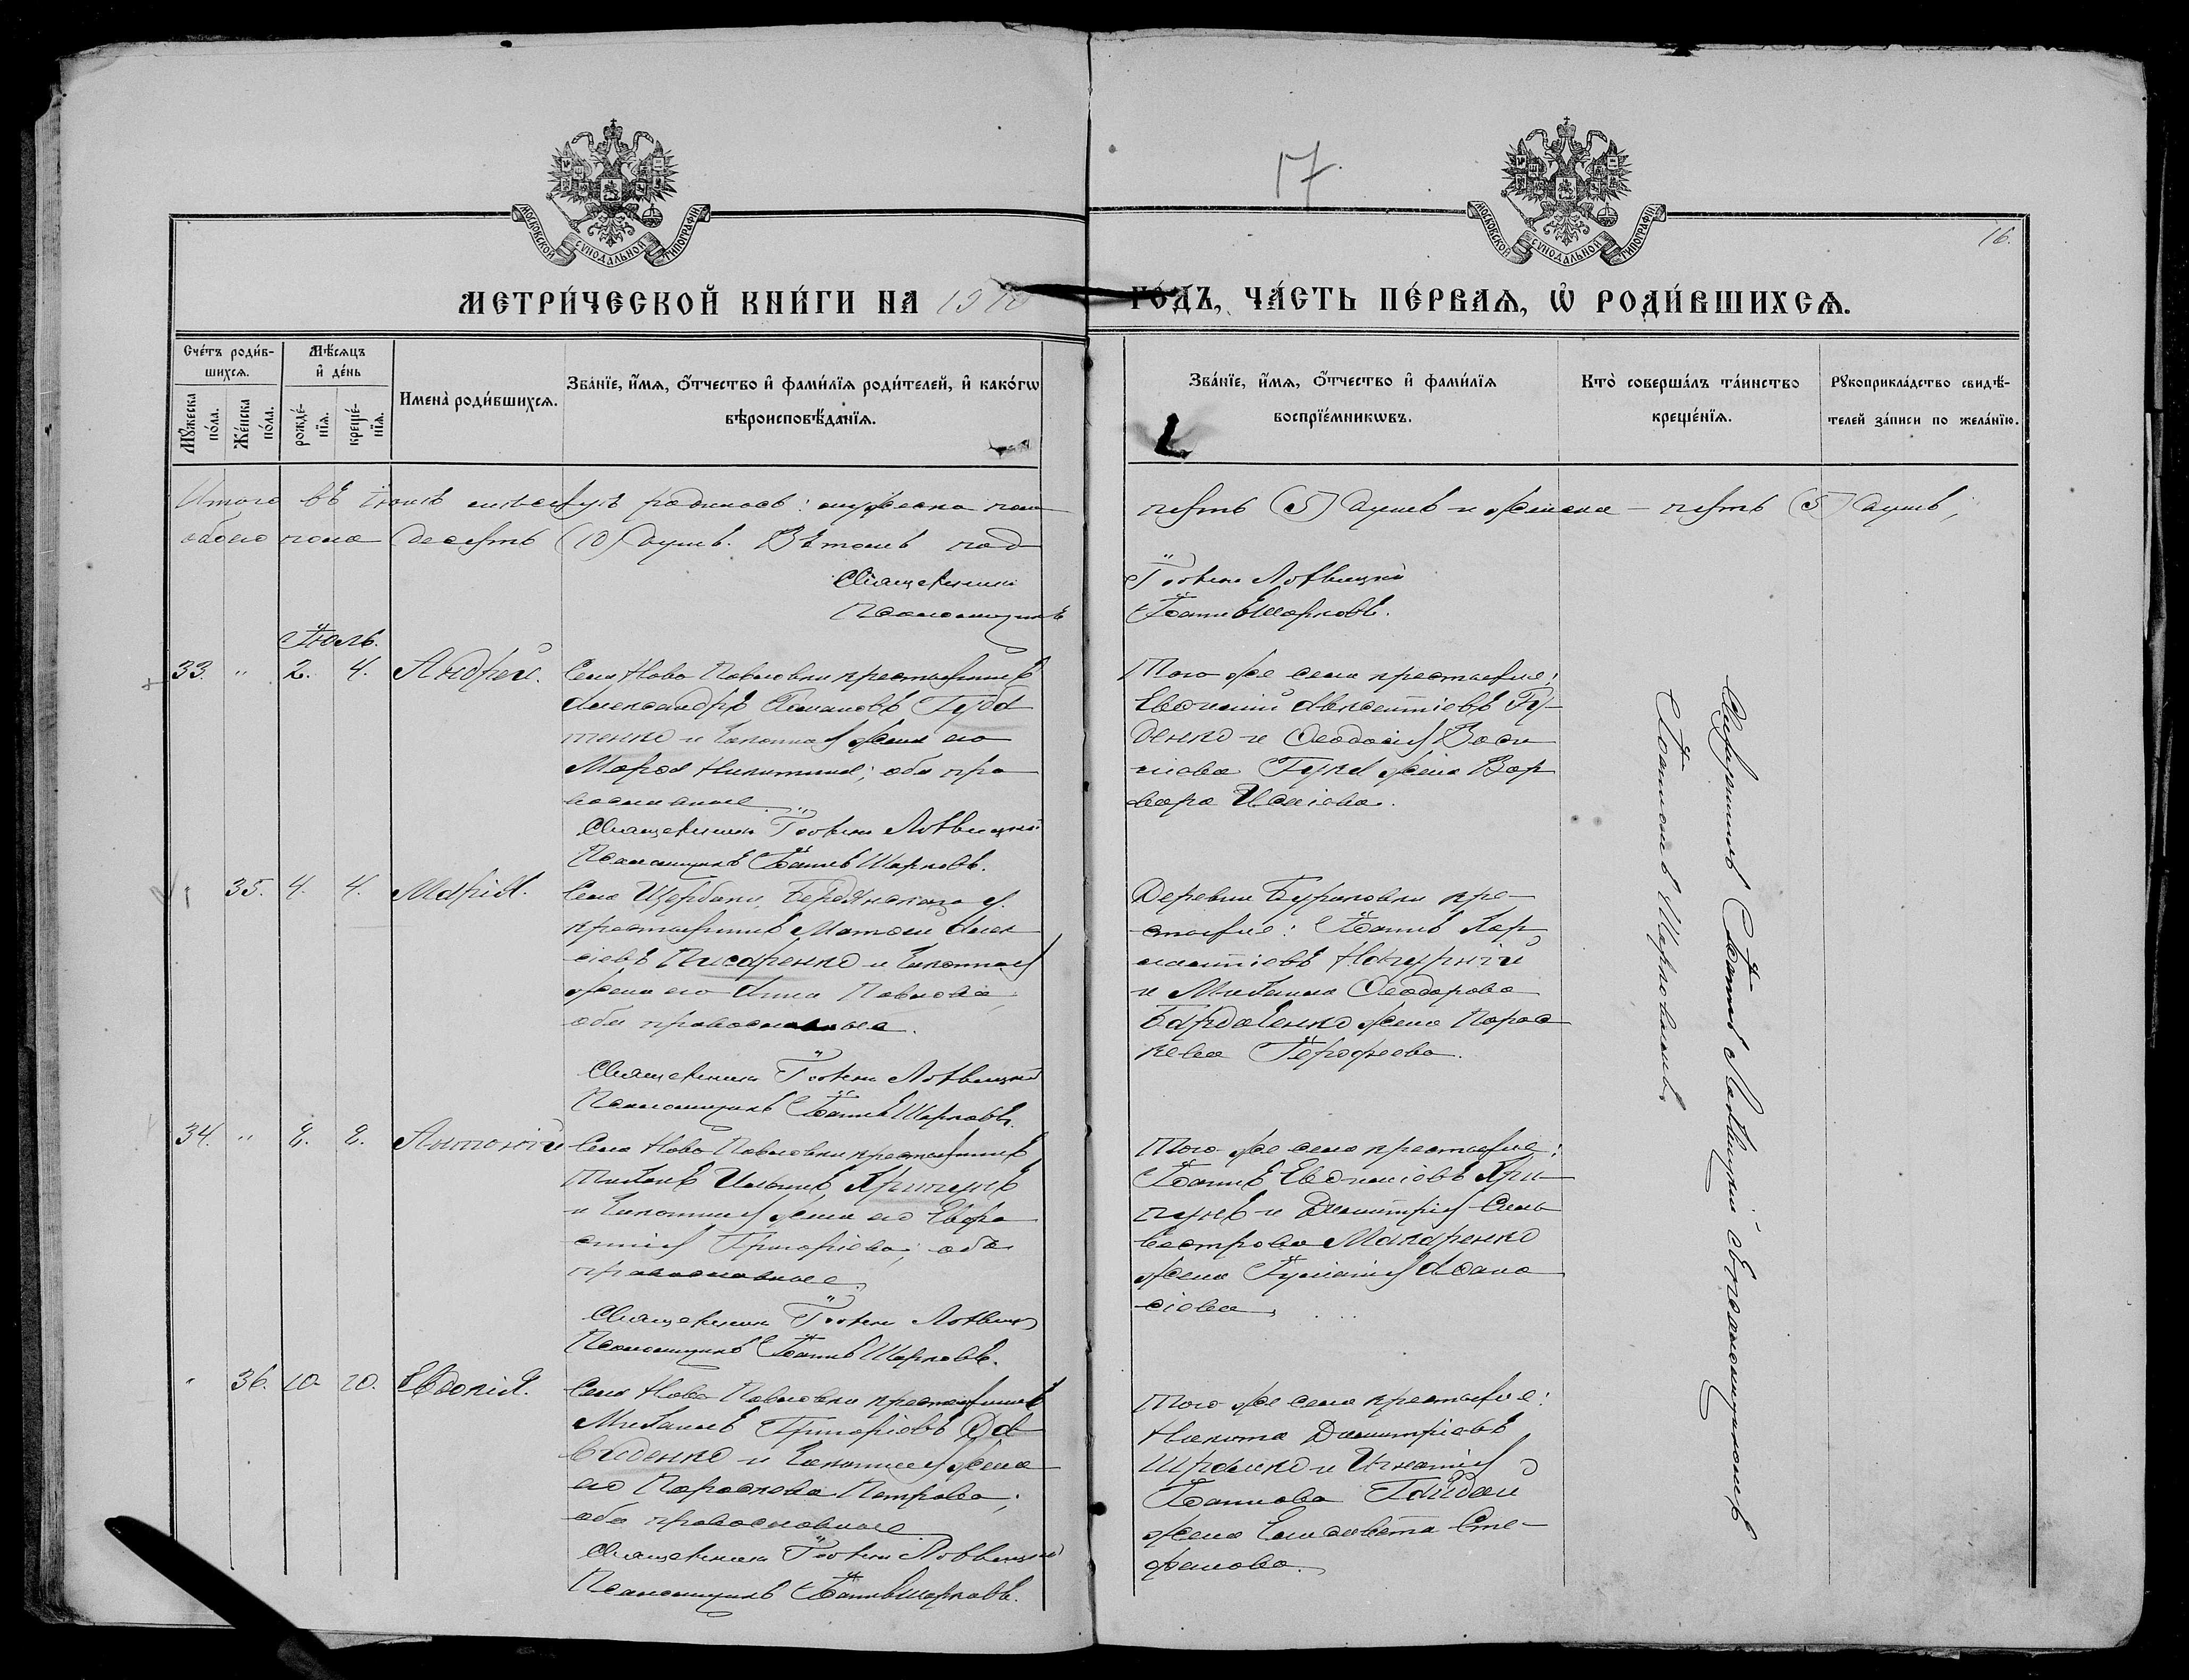 17.
16.
МОСКОВСКОЙ СѴНОДАЛЬНОЙ ТИПОГРАФІИ
МОСКОВСКОЙ СѴНОДАЛЬНОЙ ТИПОГРАФІИ
МЕТРИ́ЧЕСКОЙ КНИ́ГИ НА 1910
ГО́ДЪ, ЧА́СТЬ ПЕ́РВАѦ, Ѡ҆ РОДИ́ВШИХСѦ.
Сче́тъ роди́в-
шихсѧ.
Мꙋ́жеска
по́ла.
Же́нска
по́ла.
Мѣ́сѧцъ
и҆ де́нь
рожде́-
нїѧ.
креще́-
нїѧ.
И҆мена̀ роди́вшихсѧ.
Зва́нїе, и҆́мѧ, ѻ҆́тчество и҆ фами́лїѧ роди́телей, и҆ како́гѡ
вѣроисповѣ́данїѧ.
Зва́нїе, и҆́мѧ, ѻ҆́тчество и҆ фами́лїѧ
воспрїе́мникѡвъ.
Кто̀ соверша́лъ та́инство
креще́нїѧ.
Рꙋкоприкла́дство свидѣ́-
телей за́писи по жела́нїю.
Итого въ Іюнѣ мѣсяцѣ родилось: мужеска пола
пять (5) душъ и женска – пять (5) душъ,
обоего пола десять (10) душъ. Въ томъ под
Священникъ
Псаломщикъ
Георгій Лотвицкій
Іоаннъ Шарковъ.
Іюль.
33. " 2. 4. Андрей.
Села Ново Павловки крестьянинъ
Александръ Романовъ Губа
тенко и законная жена его
Марѳа Никитина; оба пра
вославные.
Священникъ Георгій Лотвицкій
Псаломщикъ Іоаннъ Шарковъ.
Того же села крестьяне:
Евдокимъ Авксентіевъ Гу-
денко и Ѳеодосія Васи
ліева жена Вар
вара
" 35. 4. 4. Марія.
Села Щербани, у.
крестьянинъ Матѳей Алек
сіевъ Писаренко и законная
жена его Анна Павлова,
оба православные.
Священникъ Георгій Лотвицкій
Псаломщикъ Іоаннъ Шарковъ.
Деревни Бураковки кре-
стьяне: Іоаннъ Хар
лампіевъ
и Михаила Ѳеодорова
жена Парас
кева Іероѳеева.
34. " 2. 2. Антоній
Села Ново Павловки крестьянинъ
Тихонъ Ильинъ Крипунъ
и законная жена его Евфро
синія Григоріева; оба
православные.
Священникъ Георгій Лотвицкій
Псаломщикъ Іоаннъ Шарковъ.
Того же села крестьяне:
Іоаннъ Евдокимовъ Кри-
пунъ и Димитрія Силь
вестрова Макаренко
жена Іуліанія Аѳана
сіева.
" 36. 20. 20. Евдокія.
Села Ново Павловки крестьянинъ
Михаилъ Григоріевъ Да
виденко и законная жена
его Параскева Петрова;
оба православные.
Священникъ Георгій Лотвицкій
Псаломщикъ Іоаннъ Шарковъ.
Того же села крестьяне:
Никита Димитріевъ
и Игнатія
Іоаннова Гайдай
жена Елисавета Сте-
фанова.
Священникъ Лотвицкій съ псаломщикомъ
Іоанномъ Шарковымъ